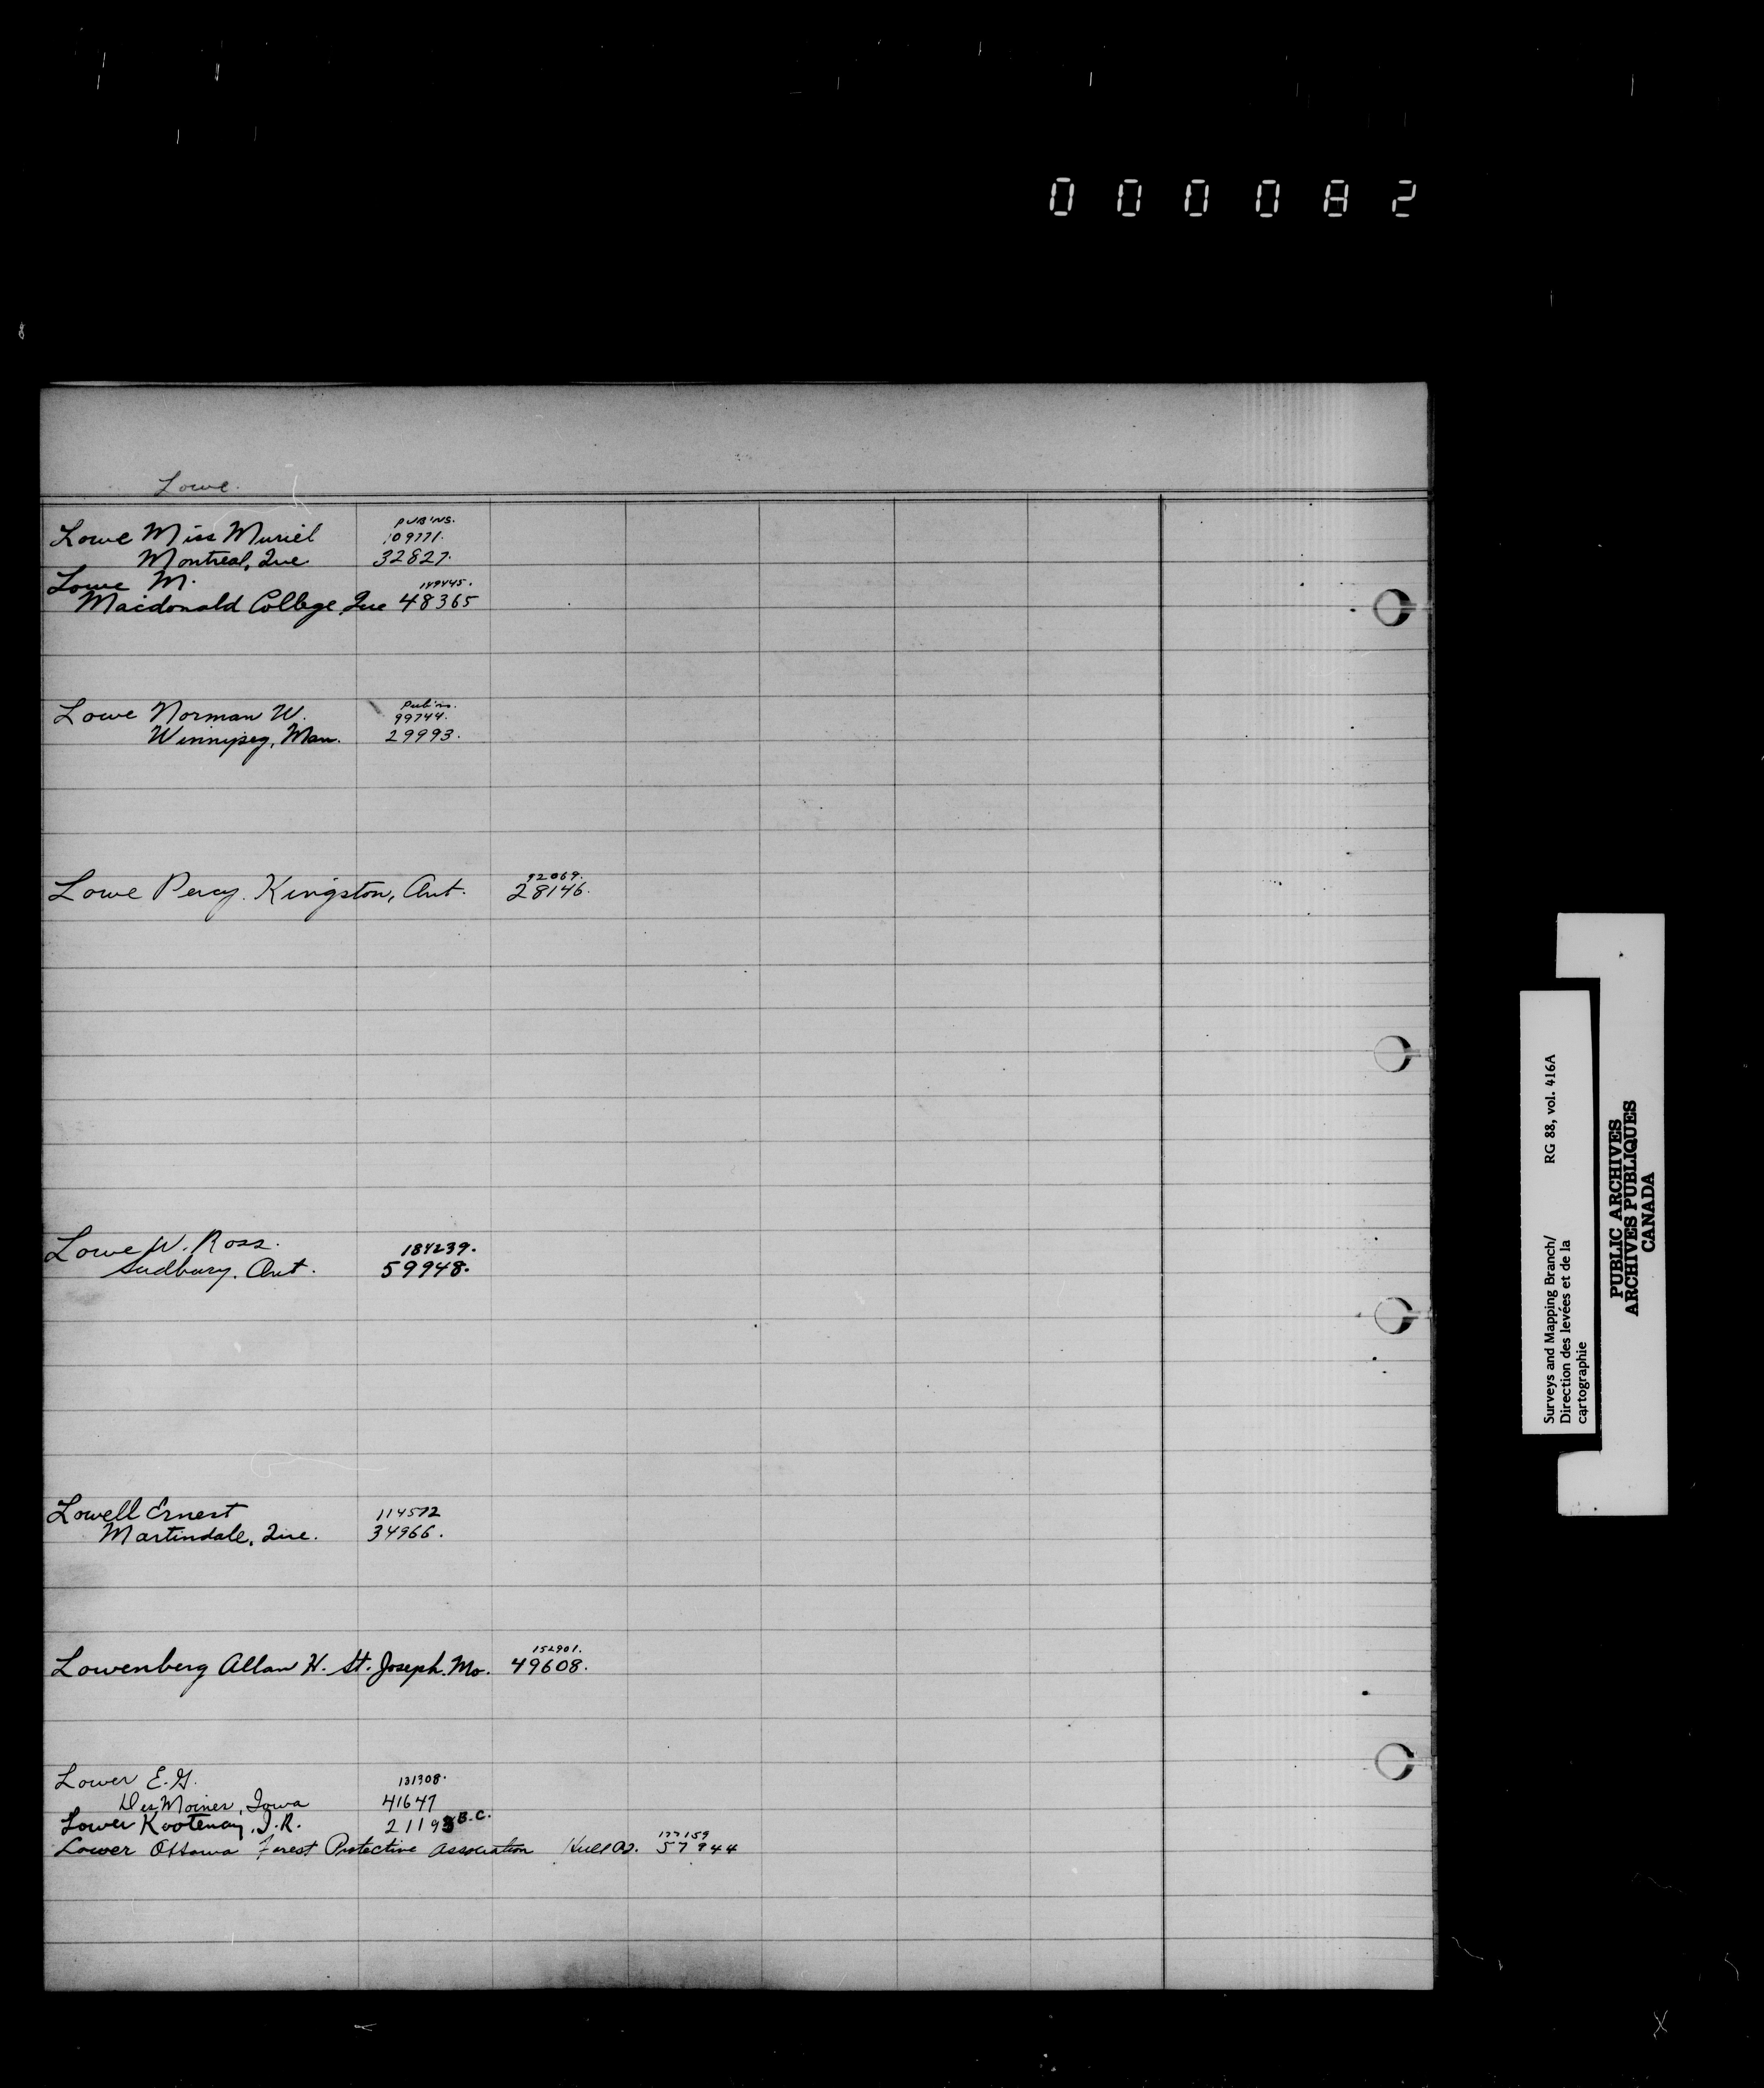 000082
Lowe.
Lowe Miss Muriel PUB'NS. 109771.
Montreal, Que. 32827.
Lowe M. 149445.
Macdonald College, Que 48365
Lowe Norman W. Pub'ns. 99744.
Winnipeg, Man. 29993.
Lowe Percy. Kingston, Ont. 92069. 28146.
Lowe W. Ross. 184239.
Sudbury. Ont. 59948.
Lowell Ernest 114572
Martindale, Que. 34966.
Lowenberg Allan H. St. Joseph. Mo. 152901. 49608.
Lower E. G. 131308.
Des Moines, Iowa 41647
Lower Kootenay, I.R. 21193 B.C.
Lower Ottawa Forest Protective Association Hull 177159 57944
Surveys and Mapping Branch/ RG 88, vol. 416A
Direction des levées et de la
cartographie
PUBLIC ARCHIVES
ARCHIVES PUBLIQUES
CANADA